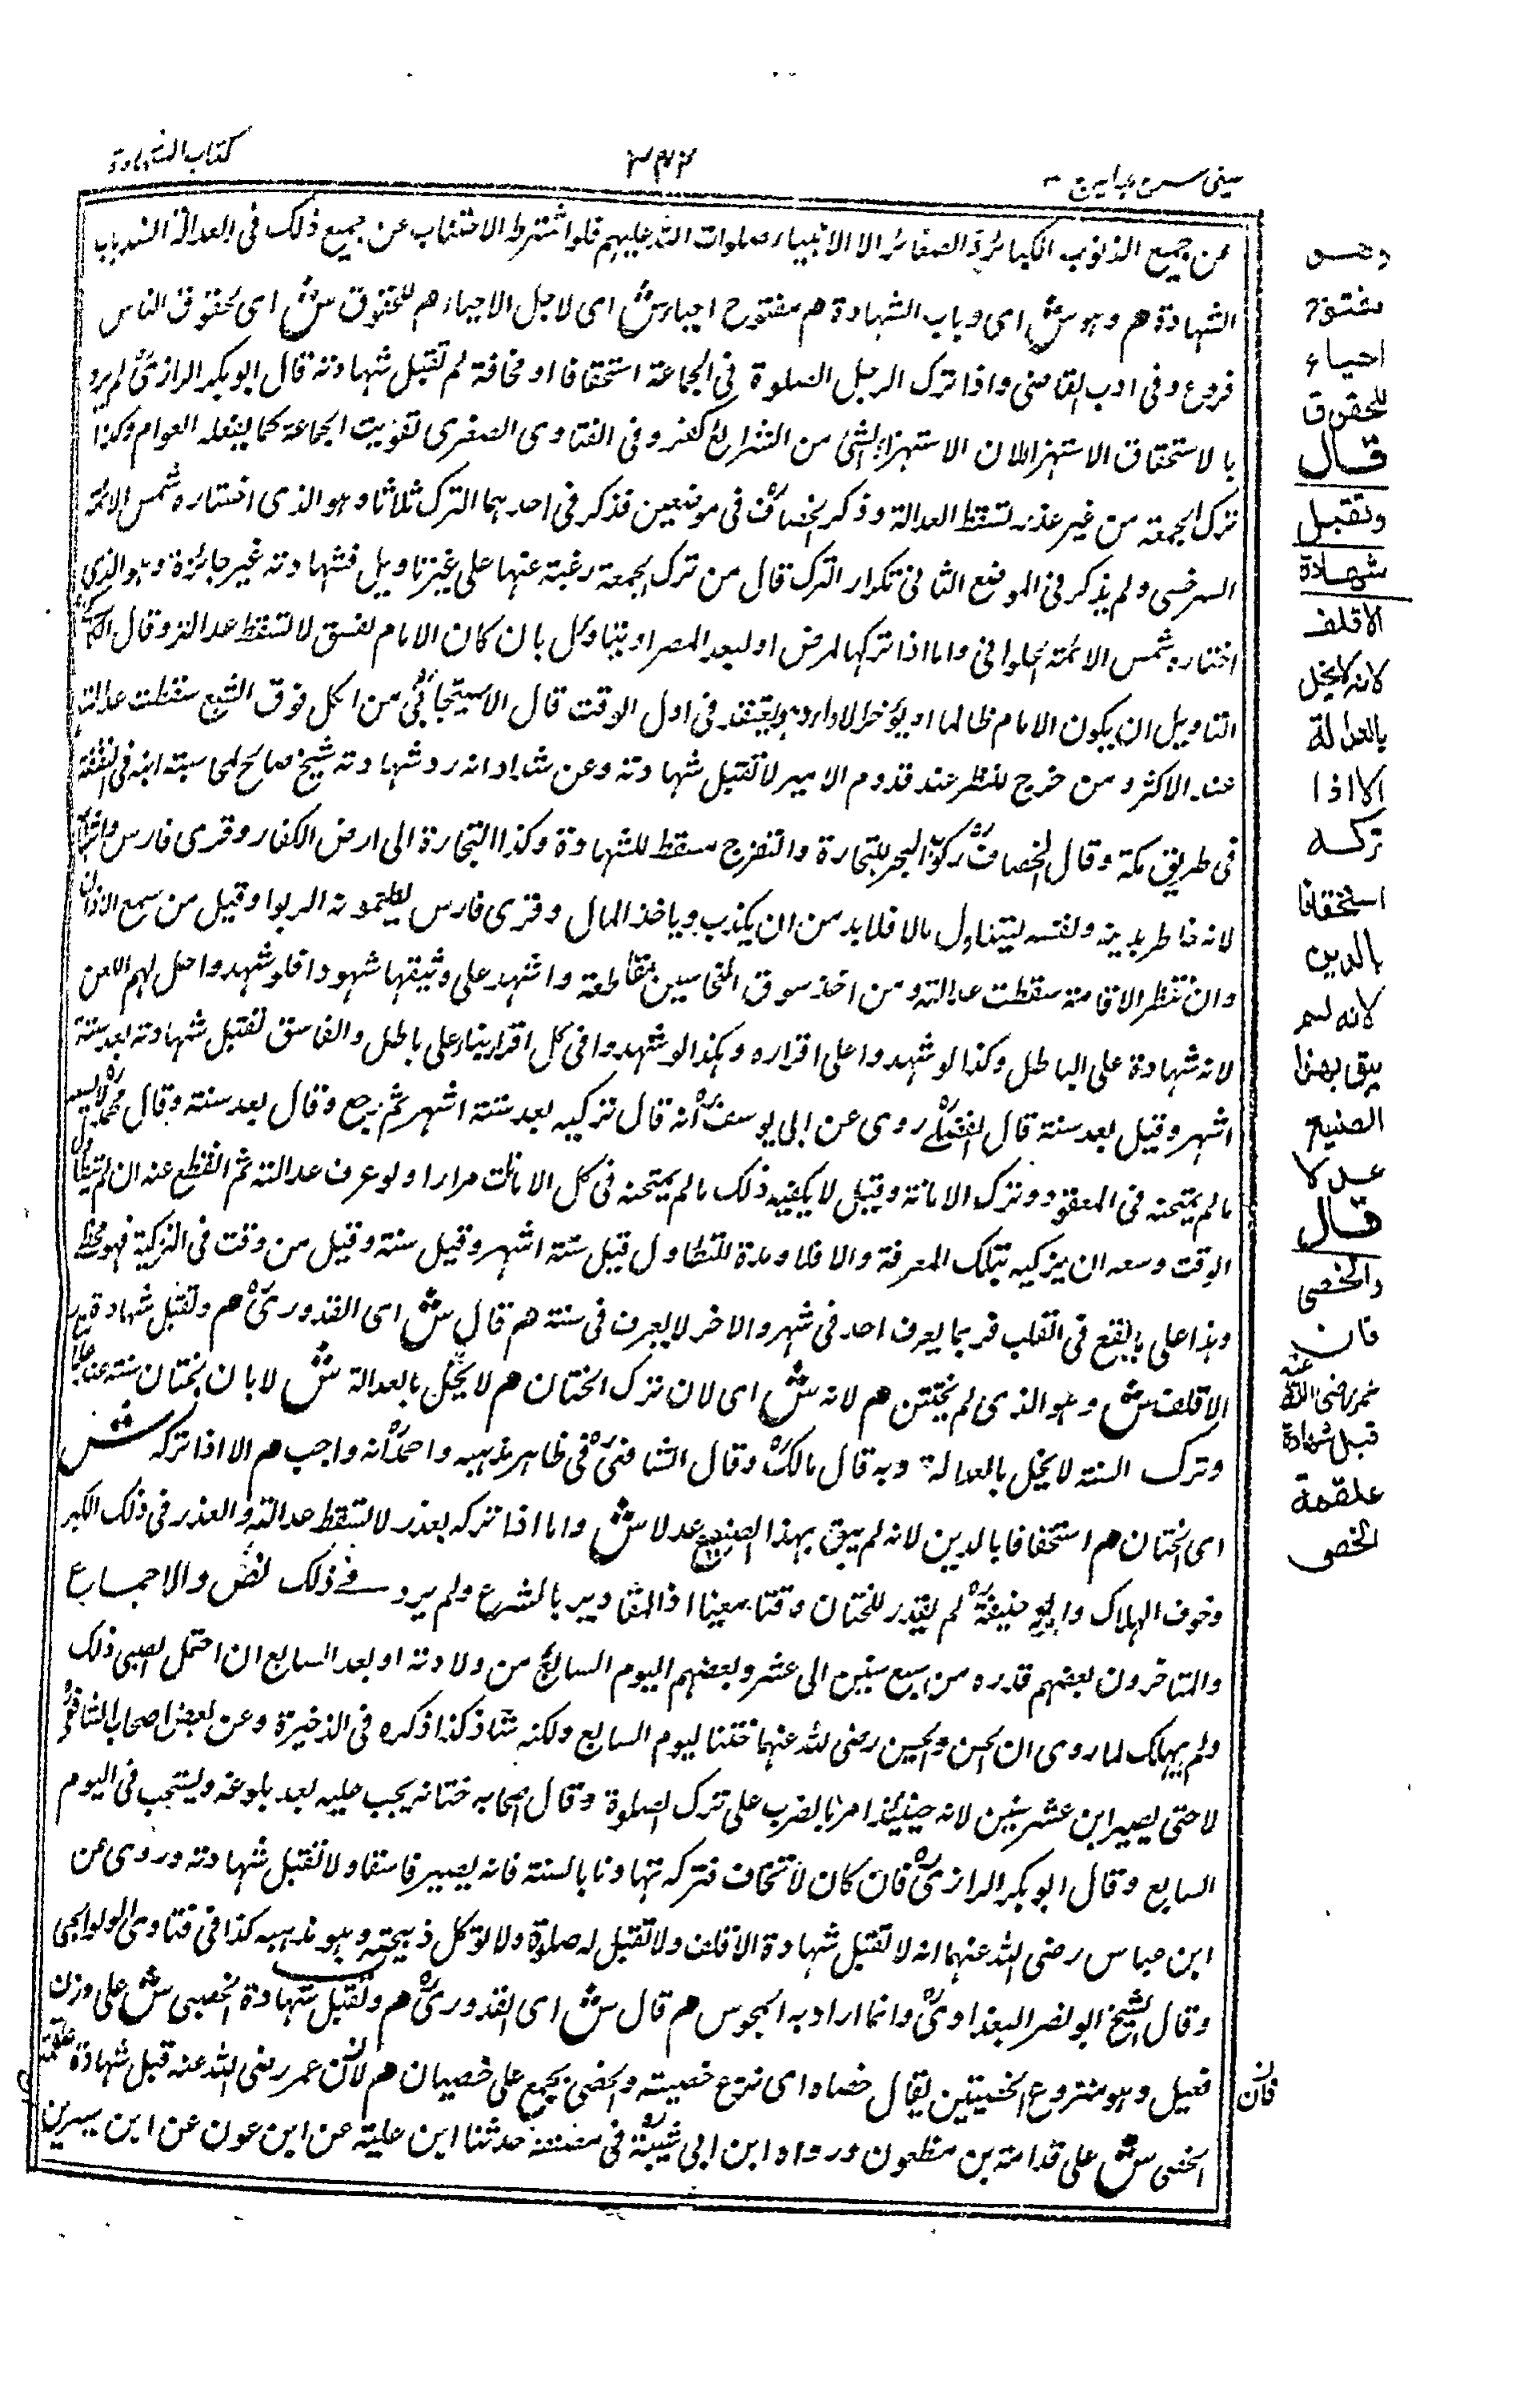 كتاب الشهادة
٣٤٢
عينى شرح هداية ج ٣
عن جميع الذنوب الكبائر والصغائر الا الانبياء صلوات الله عليهم فلو اشترط الاجتناب عن جميع ذلك فى العدالة انسد باب
الشهادة هم وهو ش اى وباب الشهادة هم مفتوح احياء ش اى لاجل الاحياء هم للحقوق ش اى لحقوق الناس
فروع وفى ادب القاضى واذا ترك الرجل الصلوة فى الجماعة استخفافا او مخافة لم تقبل شهادته قال ابو بكر الرازىؒ لم يرد
بالاستخفاف الاستهزاء لان الاستهزاء بشئ من الشرائع كفر وفى الفتاوى الصغرى تفويت الجماعة كما يفعله العوام وكذا
ترك الجمعة من غير عذر تسقط العدالة وذكر الخصافؒ فى موضعين فذكر فى احدهما الترك ثلاثا وهو الذى اختاره شمس الائمة
السرخسى ولم يذكر فى الموضع الثانى تكرار الترك قال من ترك الجمعة رغبة عنها على غير تاويل فشهادته غير جائزة وهو الذى
اختاره شمس الائمة الحلوانى واما اذا تركها لمرض او لبعد المصر او بتاويل بان كان الامام يفسق لا تسقط عدالته وقال
التاويل ان يكون الامام ظالما او يؤخر الاداء ويعتقد فى اول الوقت قال الاسبيجابىؒ من اكل فوق الشبع سقطت عدالته
عند الاكثر ومن خرج للنظر عند قدوم الامير لا تقبل شهادته وعن شداد انه رد شهادة شيخ صالح لمحاسبة ابنه فى النفقة
فى طريق مكة وقال الخصافؒ ركوب البحر للتجارة والتفرج مسقط للشهادة وكذا التجارة الى ارض الكفار وقرى فارس
لانه خاطر بدينه ونفسه ليتناول مالا فلا بد من ان يكذب وياخذ المال وقرى فارس يطعمونه الربوا وقيل من سمع الاذان
وانتظر الاقامة سقطت عدالته ومن اخذ سوق النخاسين مقاطعة واشهد على وثيقتها شهودا فلو شهدوا حل لهم اللعن
لانه شهادة على الباطل وكذا لو شهدوا على اقراره وهكذا لو شهدوا فى كل اقرار بناء على باطل والفاسق تقبل شهادته بعد ستة
اشهر وقيل بعد سنة قال الفضلىؒ روى عن ابى يوسفؒ انه قال تزكيه بعد ستة اشهر ثم رجع وقال بعد سنة وقال محمدؒ لا يسعه
مالم يمتحنه فى العقود وترك الامانة وقيل لا يكفيه ذلك مالم يمتحنه فى كل الامانات مرارا ولو عرف عدالته ثم انقطع عنه ان لم يتطاول
الوقت وسعه ان يزكيه بتلك المعرفة والا فلا ومدة للتطاول قيل ستة اشهر وقيل سنة وقيل من وقت فى التزكية فهو مخطئ
وهذا على ما يقع فى القلب فربما يعرف احد فى شهر والاخر لا يعرف فى سنة هم قال ش اى القدورىؒ هم وتقبل شهادة
الاقلف ش وهو الذى لم يختتن هم لانه ش اى لان ترك الختان هم لا يخل بالعدالة ش لا بان الختان سنة عند علمائنا
وترك السنة لا يخل بالعدالة وبه قال مالكؒ وقال الشافعىؒ فى ظاهر مذهبه واحمدؒ انه واجب هم الا اذا تركه ش
اى الختان هم استخفافا بالدين لانه لم يبق بهذا الصنيع عدلا ش واما اذا تركه بعذر لا تسقط عدالته والعذر فى ذلك الكبر
وخوف الهلاك وابو حنيفةؒ لم يقدر للختان وقتا معينا اذ المقادير بالشرع ولم يرد فى ذلك نص والاجماع
والمتاخرون بعضهم قدره من سبع سنين الى عشر وبعضهم اليوم السابع من ولادته او بعد السابع ان احتمل الصبى ذلك
ولم يهلك لما روى ان الحسن والحسين رضى الله عنهما ختنا ليوم السابع ولكنه شاذ كذا ذكره فى الذخيرة وعن بعض اصحاب الشافعىؒ
لا حتى يصير ابن عشر سنين لانه حينئذ امر بالضرب على ترك الصلوة وقال اصحابه ختانه يجب عليه بعد بلوغه ويستحب فى اليوم
السابع وقال ابو بكر الرازىؒ فان كان لا يخاف فتركه تهاونا بالسنة فانه يصير فاسقا ولا تقبل شهادته وروى عن
ابن عباس رضى الله عنهما انه لا تقبل شهادة الاقلف ولا تقبل له صلوة ولا توكل ذبيحته وهو مذهبه كذا فى فتاوى الولوالجى
وقال الشيخ ابو نصر البغدادىؒ وانما اراد به المجوس هم قال ش اى القدورىؒ هم وتقبل شهادة الخصى ش على وزن
فعيل وهو منزوع الخصيتين يقال خصاه اى نزع خصيته والخصى يجمع على خصيان هم لان عمر رضى الله عنه قبل شهادة علقمة
الخصى ش على قدامة بن مظعون ورواه ابن ابى شيبةؒ فى مصنفه حدثنا ابن علية عن ابن عون عن ابن سيرين
وهو
مفتوح
احياء
للحقوق
قال
وتقبل
شهادة
الاقلف
لانه لا يخل
بالعدالة
الا اذا
تركه
استخفافا
بالدين
لانه لم
يبق بهذا
الصنيع
عدلا
قال
والخصى
فان
عمر رضى الله عنه
قبل شهادة
علقمة
الخصى
فان